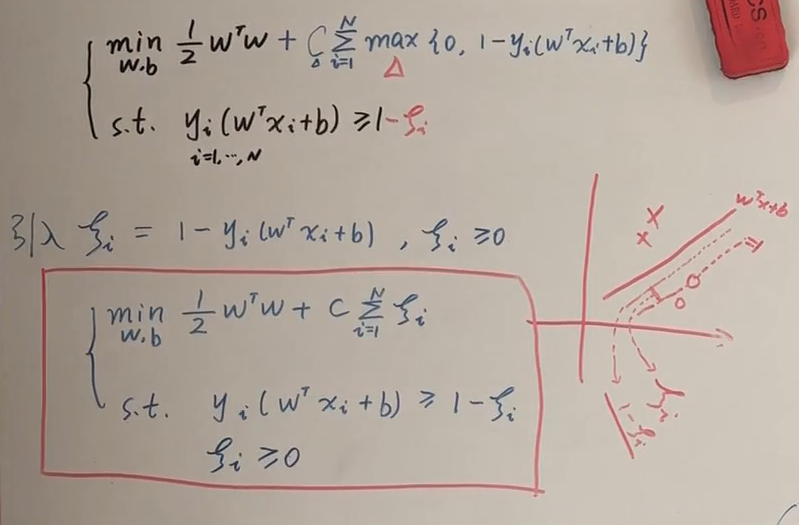 min 1/2 wᵀw + C Σ_{i=1}^{N} max {0, 1-yᵢ(wᵀxᵢ+b)}
w.b
Δ Δ
s.t. yᵢ(wᵀxᵢ+b) ≥1-ξᵢ
i=1,…,N
引入 ξᵢ = 1-yᵢ(wᵀxᵢ+b) , ξᵢ ≥0
min 1/2 wᵀw + C Σ_{i=1}^{N} ξᵢ
w.b
s.t. yᵢ(wᵀxᵢ+b) ≥ 1-ξᵢ
ξᵢ ≥0
wᵀx+b
1
ξᵢ
1-ξᵢ